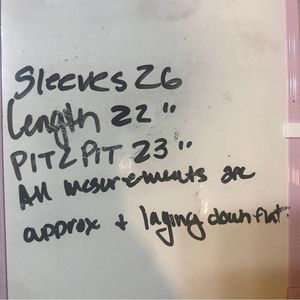 Sleeves 26
Length 22 "
PIT 2 PIT 23 "
All mesurements are
approx + laying down flat.